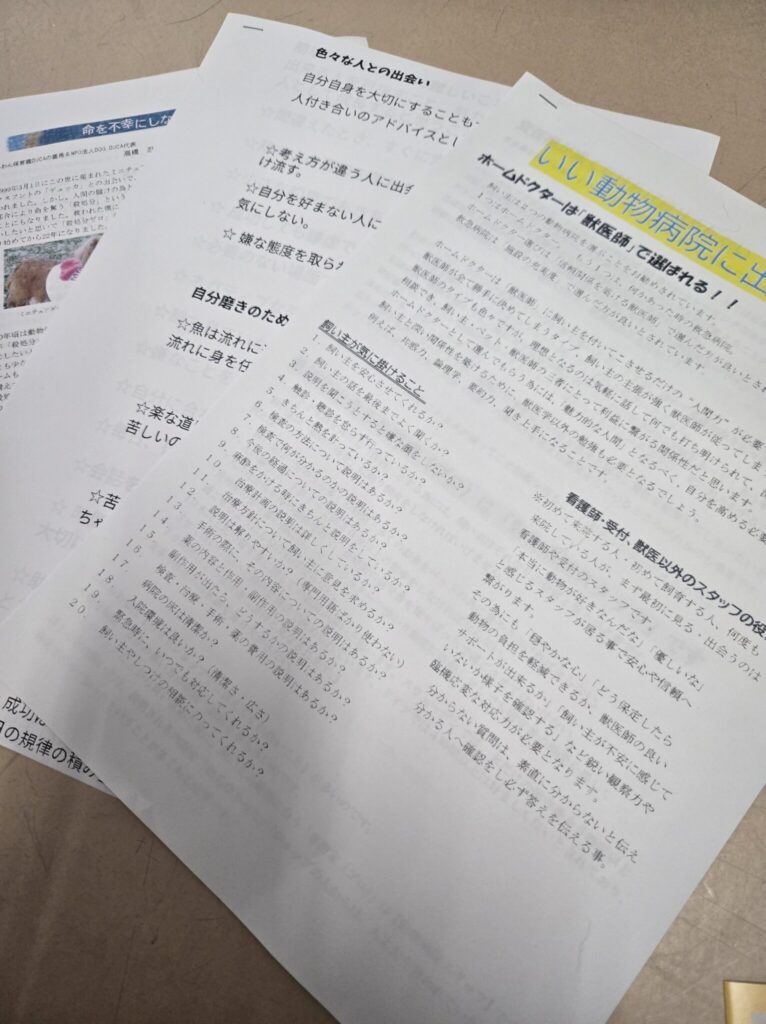 命を不幸にしな
色々な人との出会い
自分自身を大切にすることも
人付き合いのアドバイスとし
☆考え方が違う人に出
け流す。
☆自分を好まない人に
気にしない。
☆嫌な態度を取ら
自分磨きのため
☆魚は流れに
流れに身を任
☆楽な道
苦しいの
☆苦
ちゃ
成功に
の規律の積み
いい動物病院に出
ホームドクターは「獣医師」で選ばれる！！
飼い主は2つの動物病院を選ぶことをお勧めされています。
1つはホームドクター、もう1つは、何かあった時の救急病院。
ホームドクター選びは「信頼関係を築ける獣医師」で選んだ方が良いとされ
救急病院は「施設の充実度」で選んだ方が良いとされています。
ホームドクターは、獣医師に飼い主を付いてこさせるだけの“人間力”が必要
獣医師が全て勝手に決めてしまうタイプ、飼い主の主張が強く獣医師が従ってしまう
獣医師のタイプも色々ですが、理想となるのは気軽に話して何でも打ち明けられて、
相談でき、飼い主・ペット・獣医師の三者にとって利益に繋がる関係性だと思います。
ホームドクターとして選んでもらう為には、“魅力的な人間”となるべく、自分を高める必要
飼い主と深い関係性を築けるために、獣医学以外の勉強も必要となるでしょう。
例えば、共感力、論理学、要約力、聞き上手になることです。
飼い主が気に掛けること
1. 飼い主を安心させてくれるか？
2. 飼い主の話を最後までよく聞くか？
3. 説明を聞こうとすると嫌な顔をしないか？
4. 触診・聴診を怠らず行っているか？
5. きちんと熱を計っているか？
6. 検査の方法について説明はあるか？
7. 検査で何が分かるのかの説明はあるか？
8. 今後の経過についての説明はあるか？
9. 麻酔をかける時にきちんと説明をしているか？
10. 治療計画の説明は詳しくしているか？
11. 治療方針について飼い主に意見を求めるか？
12. 説明は解りやすいか？（専門用語ばかり使わない）
13. 手術の際に、その内容についての説明はあるか？
14. 薬の内容と作用・副作用の説明はあるか？
15. 副作用が出たら、どうするかの説明はあるか？
16. 検査・治療・手術・薬の費用の説明はあるか？
17. 病院の床は清潔か？
18. 入院環境は良いか？（清潔さ・広さ）
19. 緊急時に、いつでも対応してくれるか？
20. 飼い主やしつけの相談にのってくれるか？
看護師・受付、獣医以外のスタッフの役
※初めて来院する人・初めて飼育する人、何度も
来院している人が、まず最初に見る・出会うのは
看護師や受付のスタッフです。
「本当に動物が好きなんだな」「優しいな」
と感じるスタッフが居る事で安心や信頼へ
繋がります。
その為にも「穏やかな心」「どう保定したら
動物の負担を軽減できるか、獣医師の良い
サポートが出来るか」「飼い主が不安に感じて
いないか様子を確認する」など鋭い観察力や
臨機応変な対応力が必要となります。
分からない質問は、素直に分からないと伝え
分かる人へ確認をし必ず答えを伝える事。